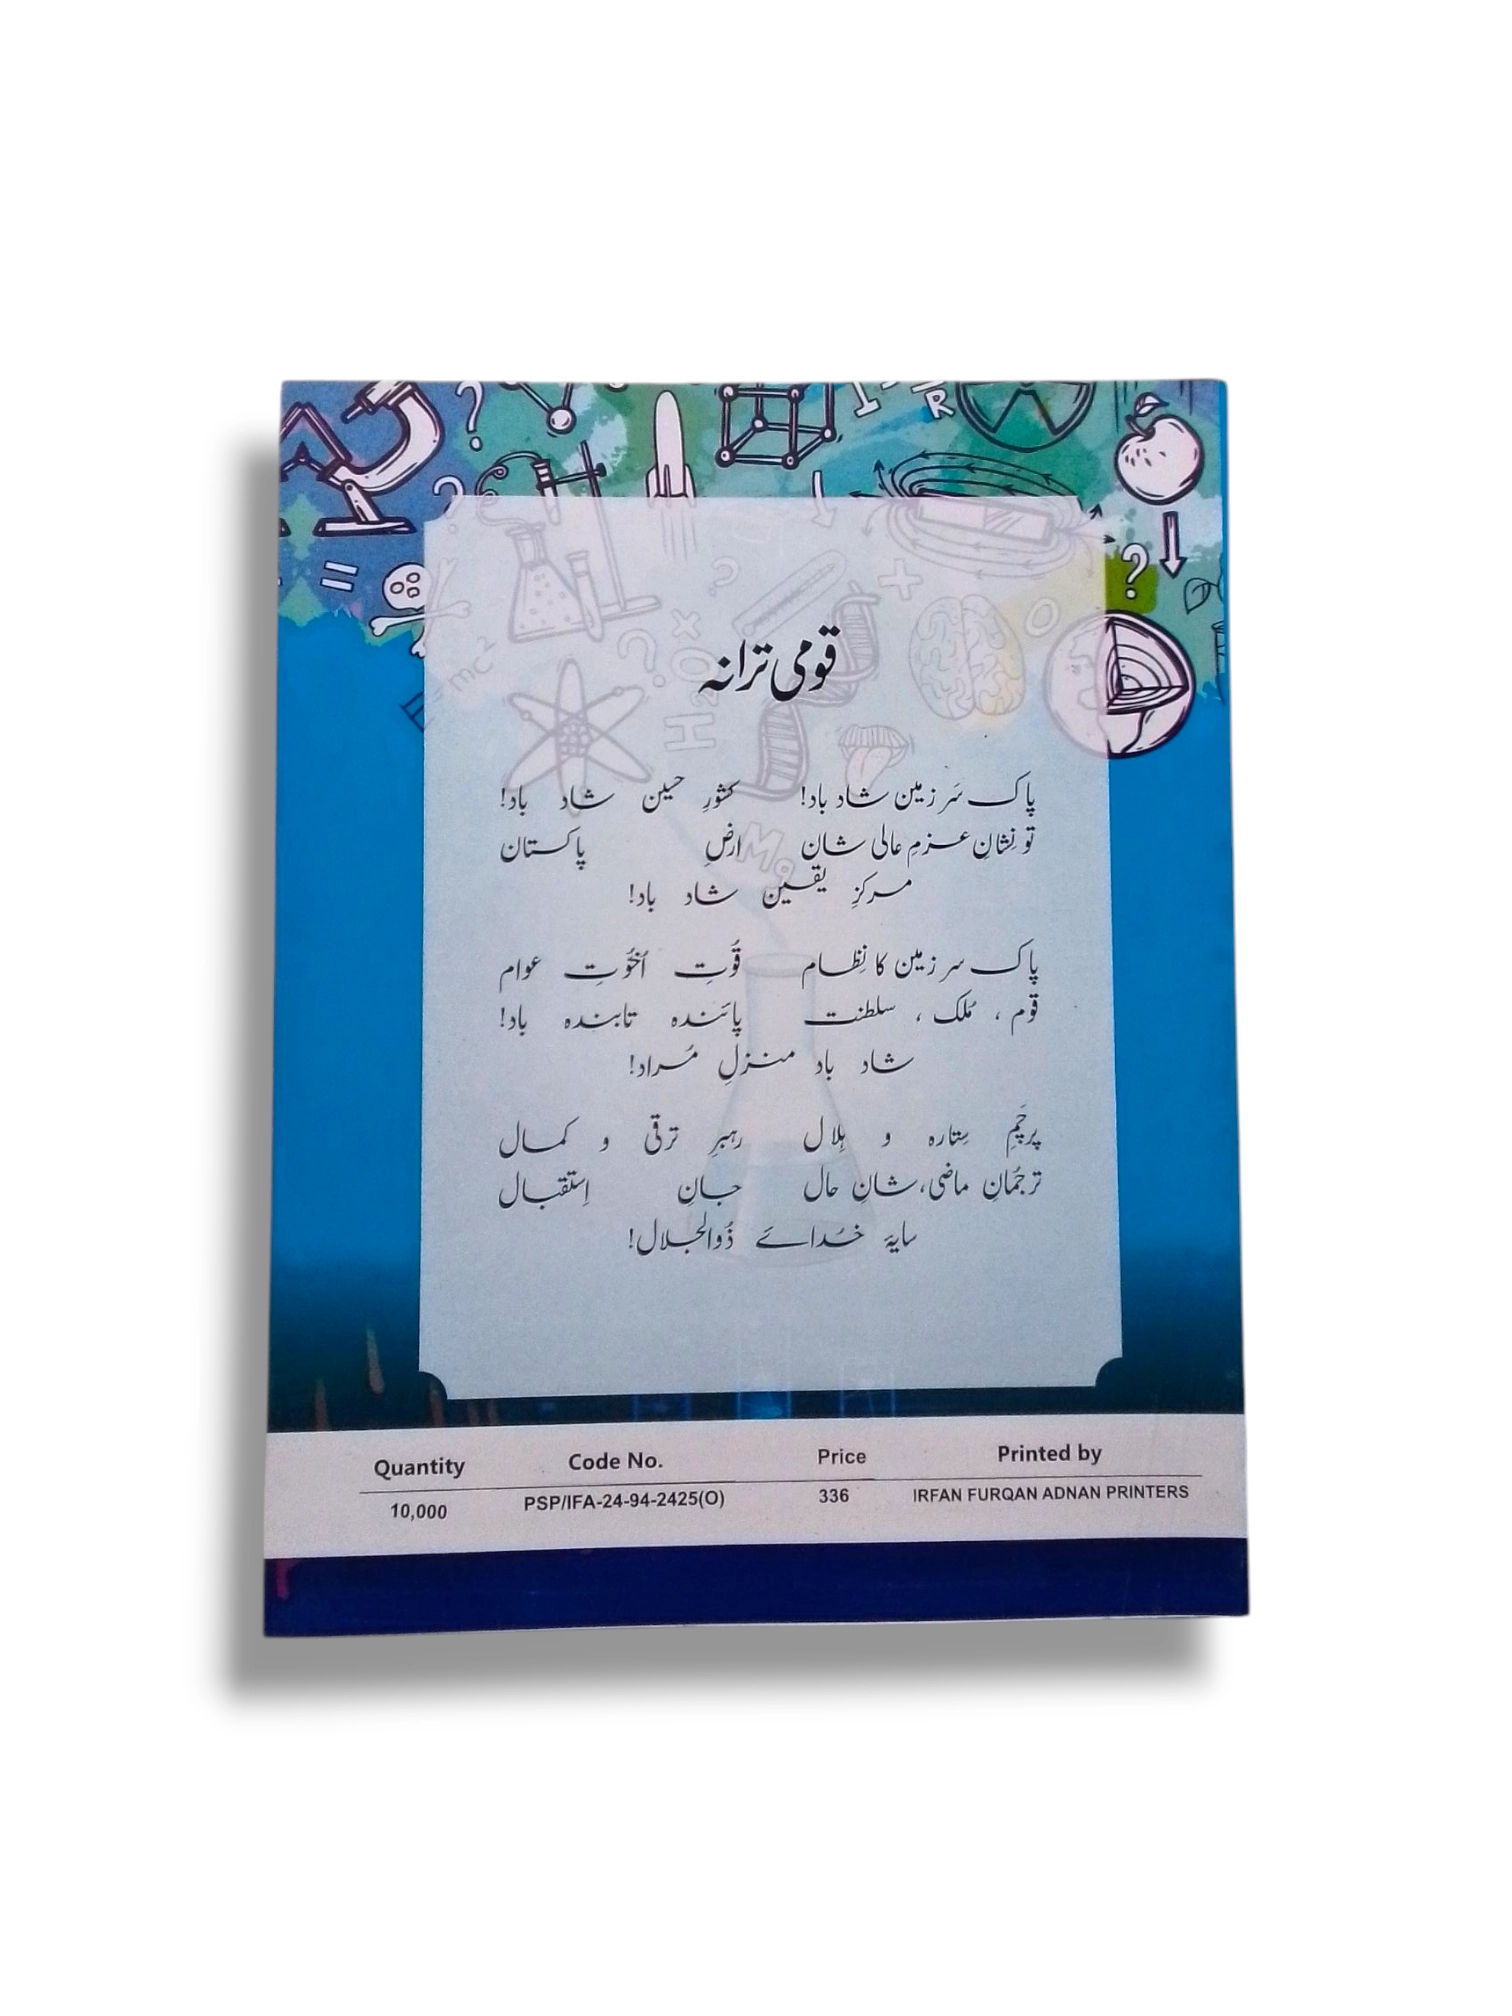 قومی ترانہ
پاک سَر زمین شاد باد! کشورِ حسین شاد باد!
تو نِشانِ عزمِ عالی شان ارضِ پاکستان
مرکزِ یقین شاد باد!
پاک سر زمین کا نِظام قُوّتِ اُخُوّتِ عوام
قوم ، مُلک ، سلطنت پائندہ تابندہ باد!
شاد باد منزلِ مُراد!
پرچَمِ سِتارہ و ہِلال رہبرِ ترقی و کمال
ترجُمانِ ماضی، شانِ حال جانِ اِستقبال
سایۂ خُدائے ذُوالجلال!
Quantity Code No. Price Printed by
10,000 PSP/IFA-24-94-2425(O) 336 IRFAN FURQAN ADNAN PRINTERS
? ? R
=
? ? × +
E=mc²
H₂O
Mg